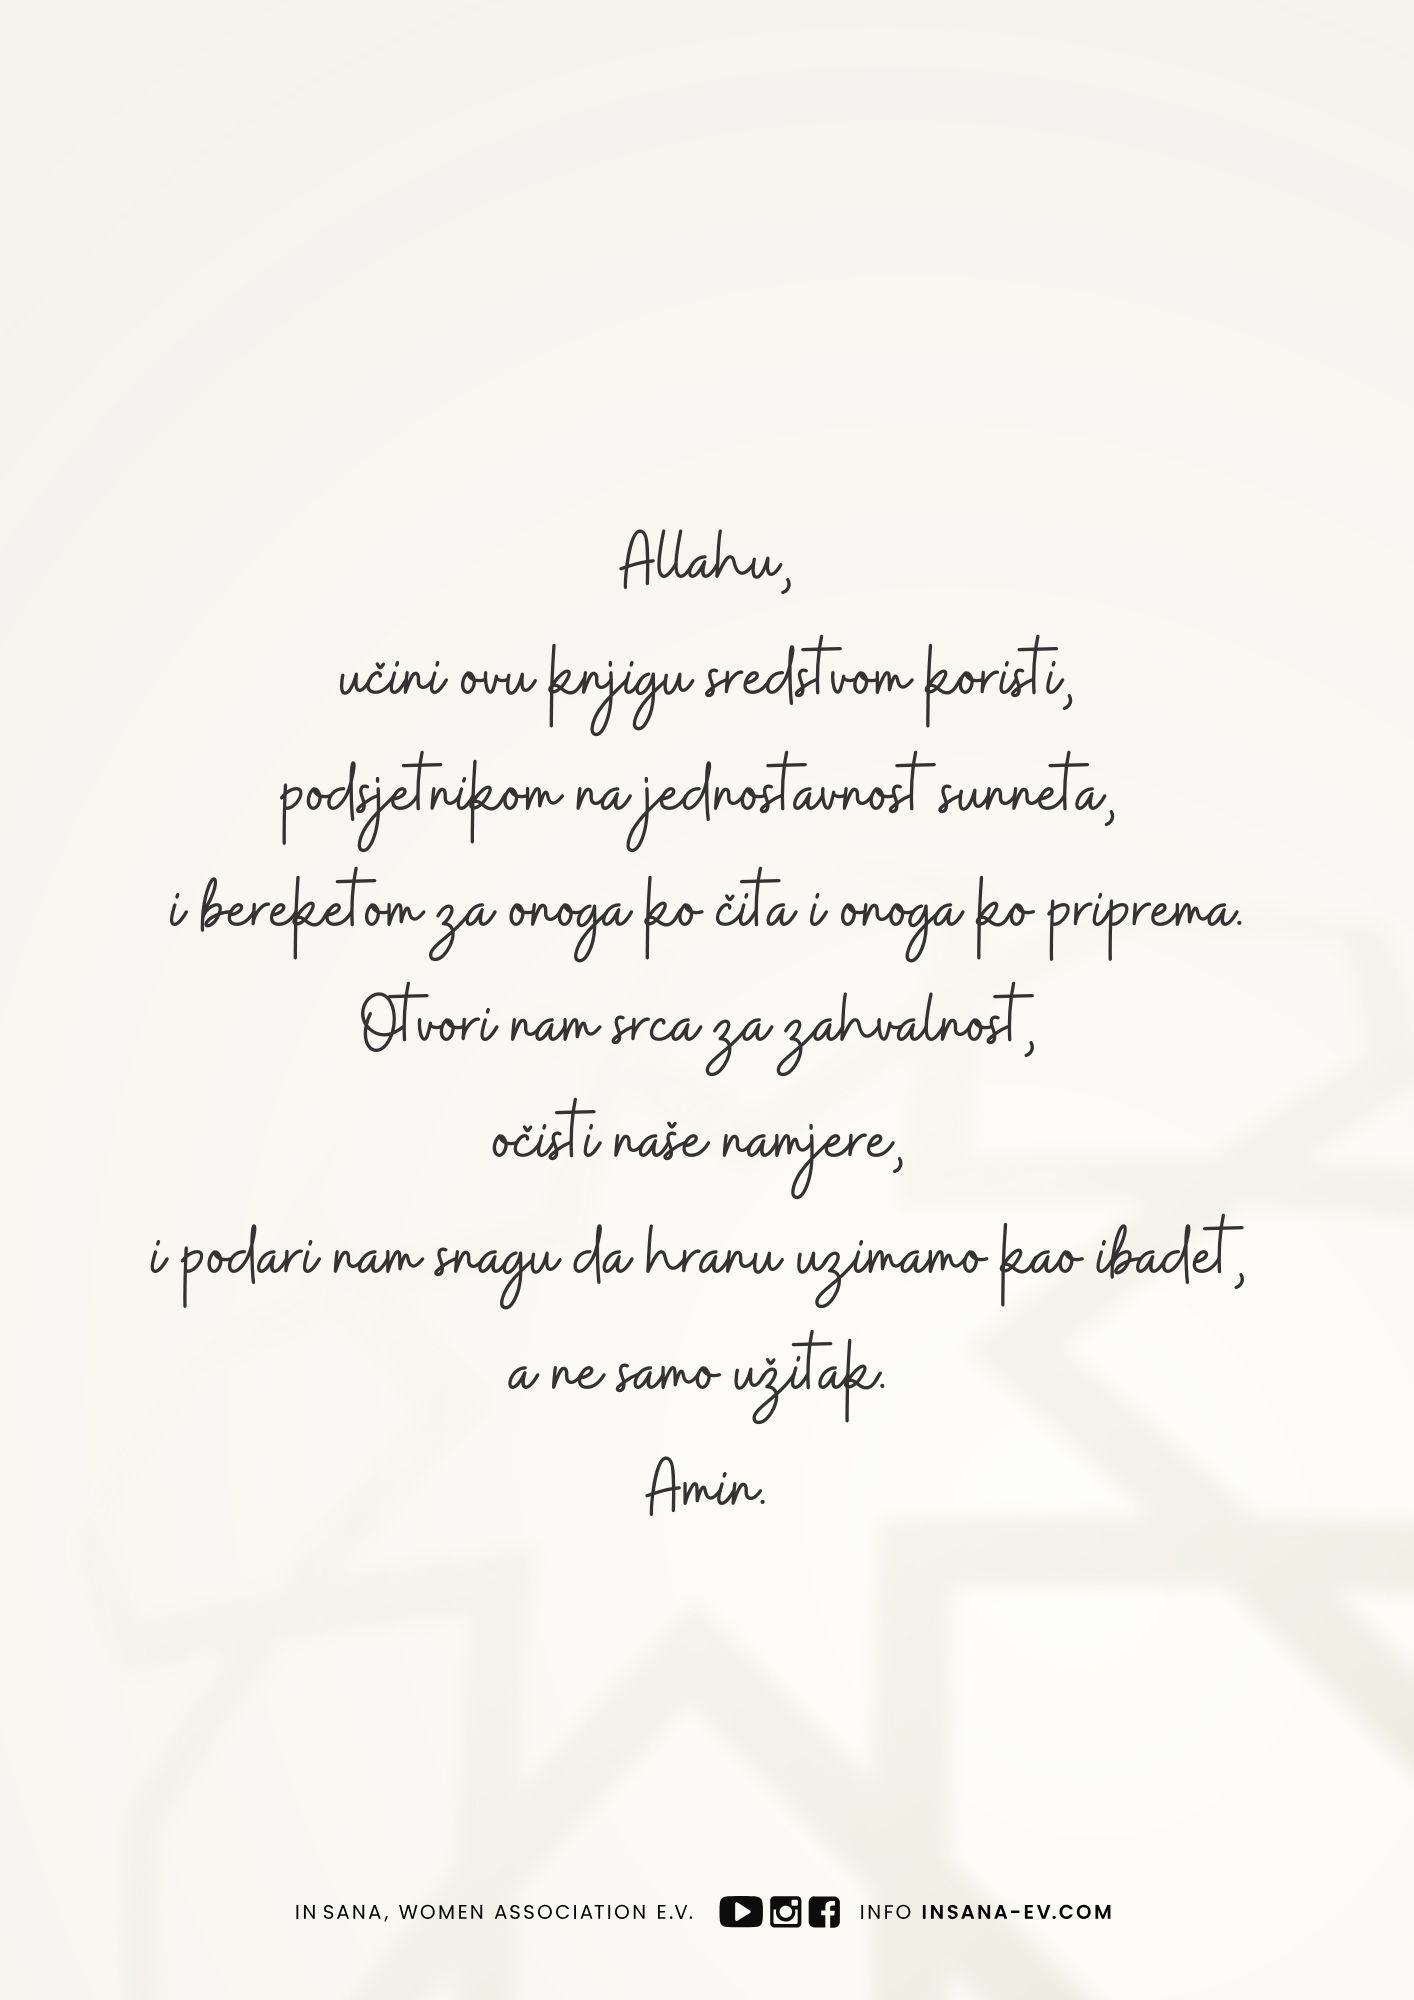 Allahu,
učini ovu knjigu sredstvom koristi,
podsjetnikom na jednostavnost sunneta,
i bereketom za onoga ko čita i onoga ko priprema.
Otvori nam srca za zahvalnost,
očisti naše namjere,
i podari nam snagu da hranu uzimamo kao ibadet,
a ne samo užitak.
Amin.
IN SANA, WOMEN ASSOCIATION E.V. INFO INSANA-EV.COM